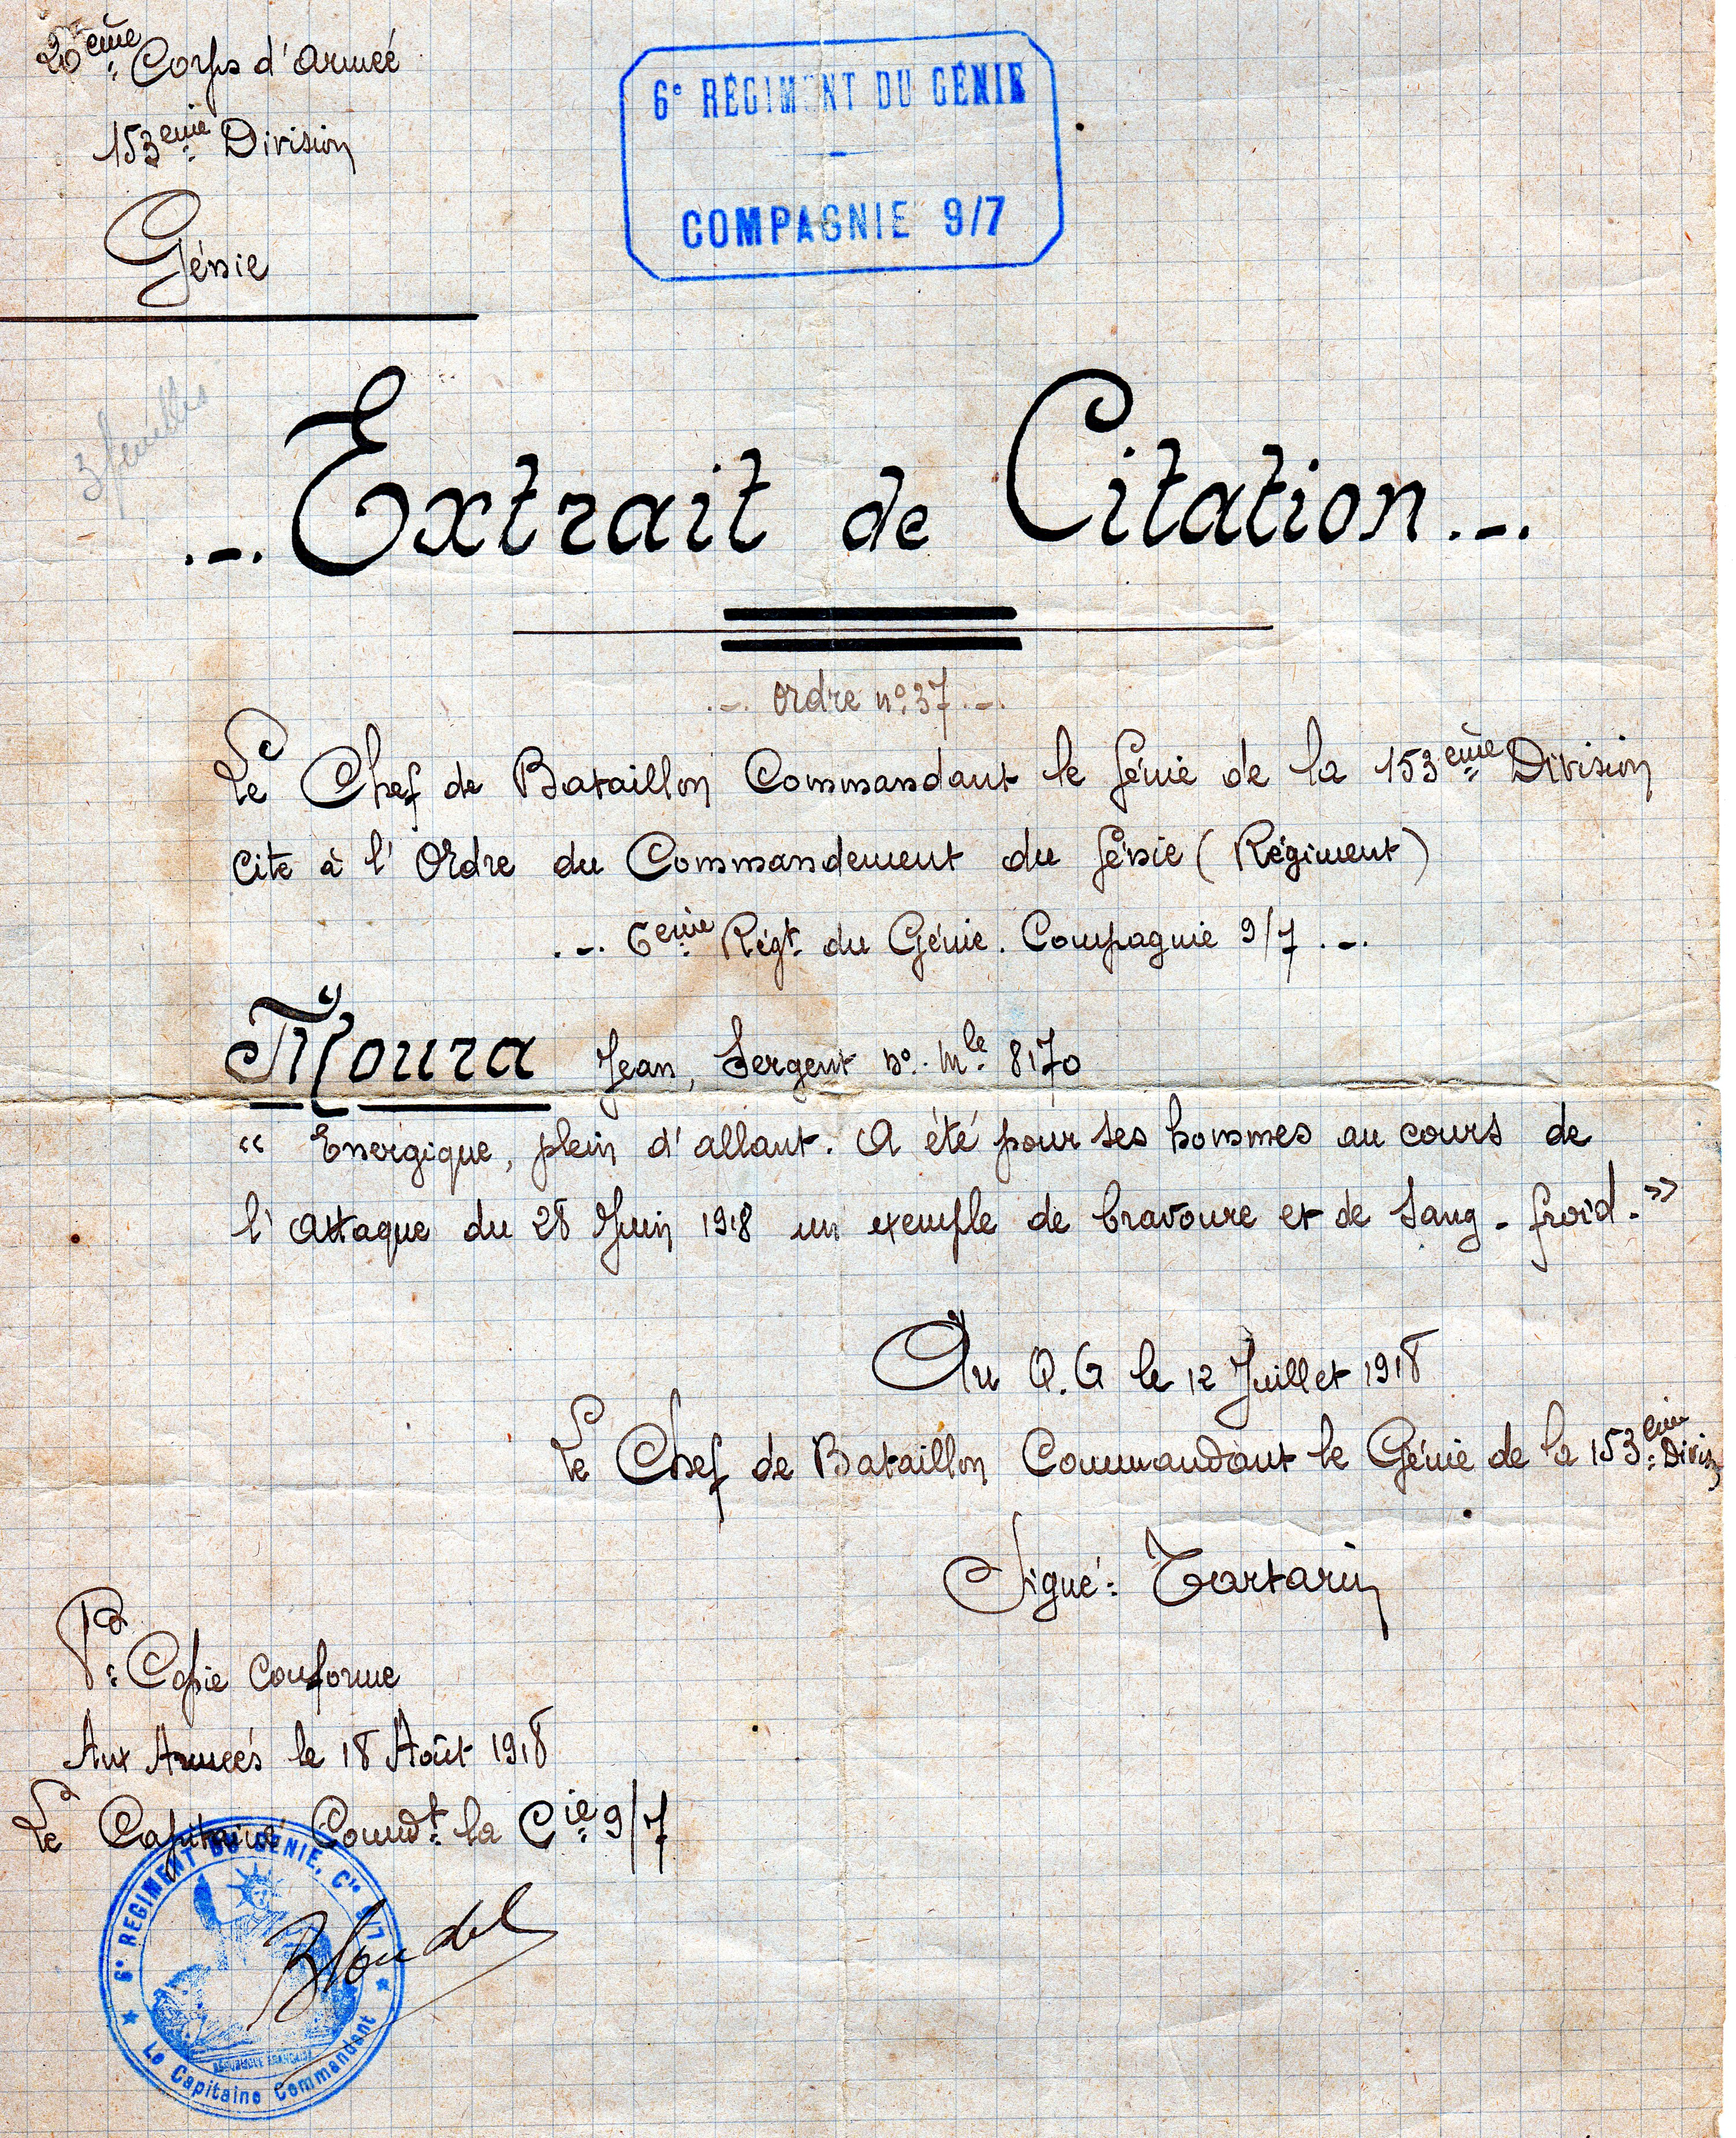 20ème Corps d'armée
153ème Division
Génie
6e RÉGIMENT DU GÉNIE
COMPAGNIE 9/7
3 feuilles
Extrait de Citation
Ordre no. 37
Le Chef de Bataillon Commandant le Génie de la 153ème Division
cite à l'Ordre du Commandement du Génie (Régiment)
6ème Régt du Génie. Compagnie 9/7
Moura Jean, Sergent no. Mle 8170
« Energique, plein d'allant. A été pour ses hommes au cours de
l'attaque du 28 Juin 1918 un exemple de bravoure et de sang-froid. »
Au Q.G le 12 Juillet 1918
Le Chef de Bataillon Commandant le Génie de la 153ème Divis
Signé: Tartarin
Pr Copie Conforme
Aux Armées le 18 Août 1918
Le Capitaine Commdt la Cie 9/7
6e REGIMENT DU GENIE, Cie 9/7
Blondel
REPUBLIQUE FRANÇAISE
Le Capitaine Commandant